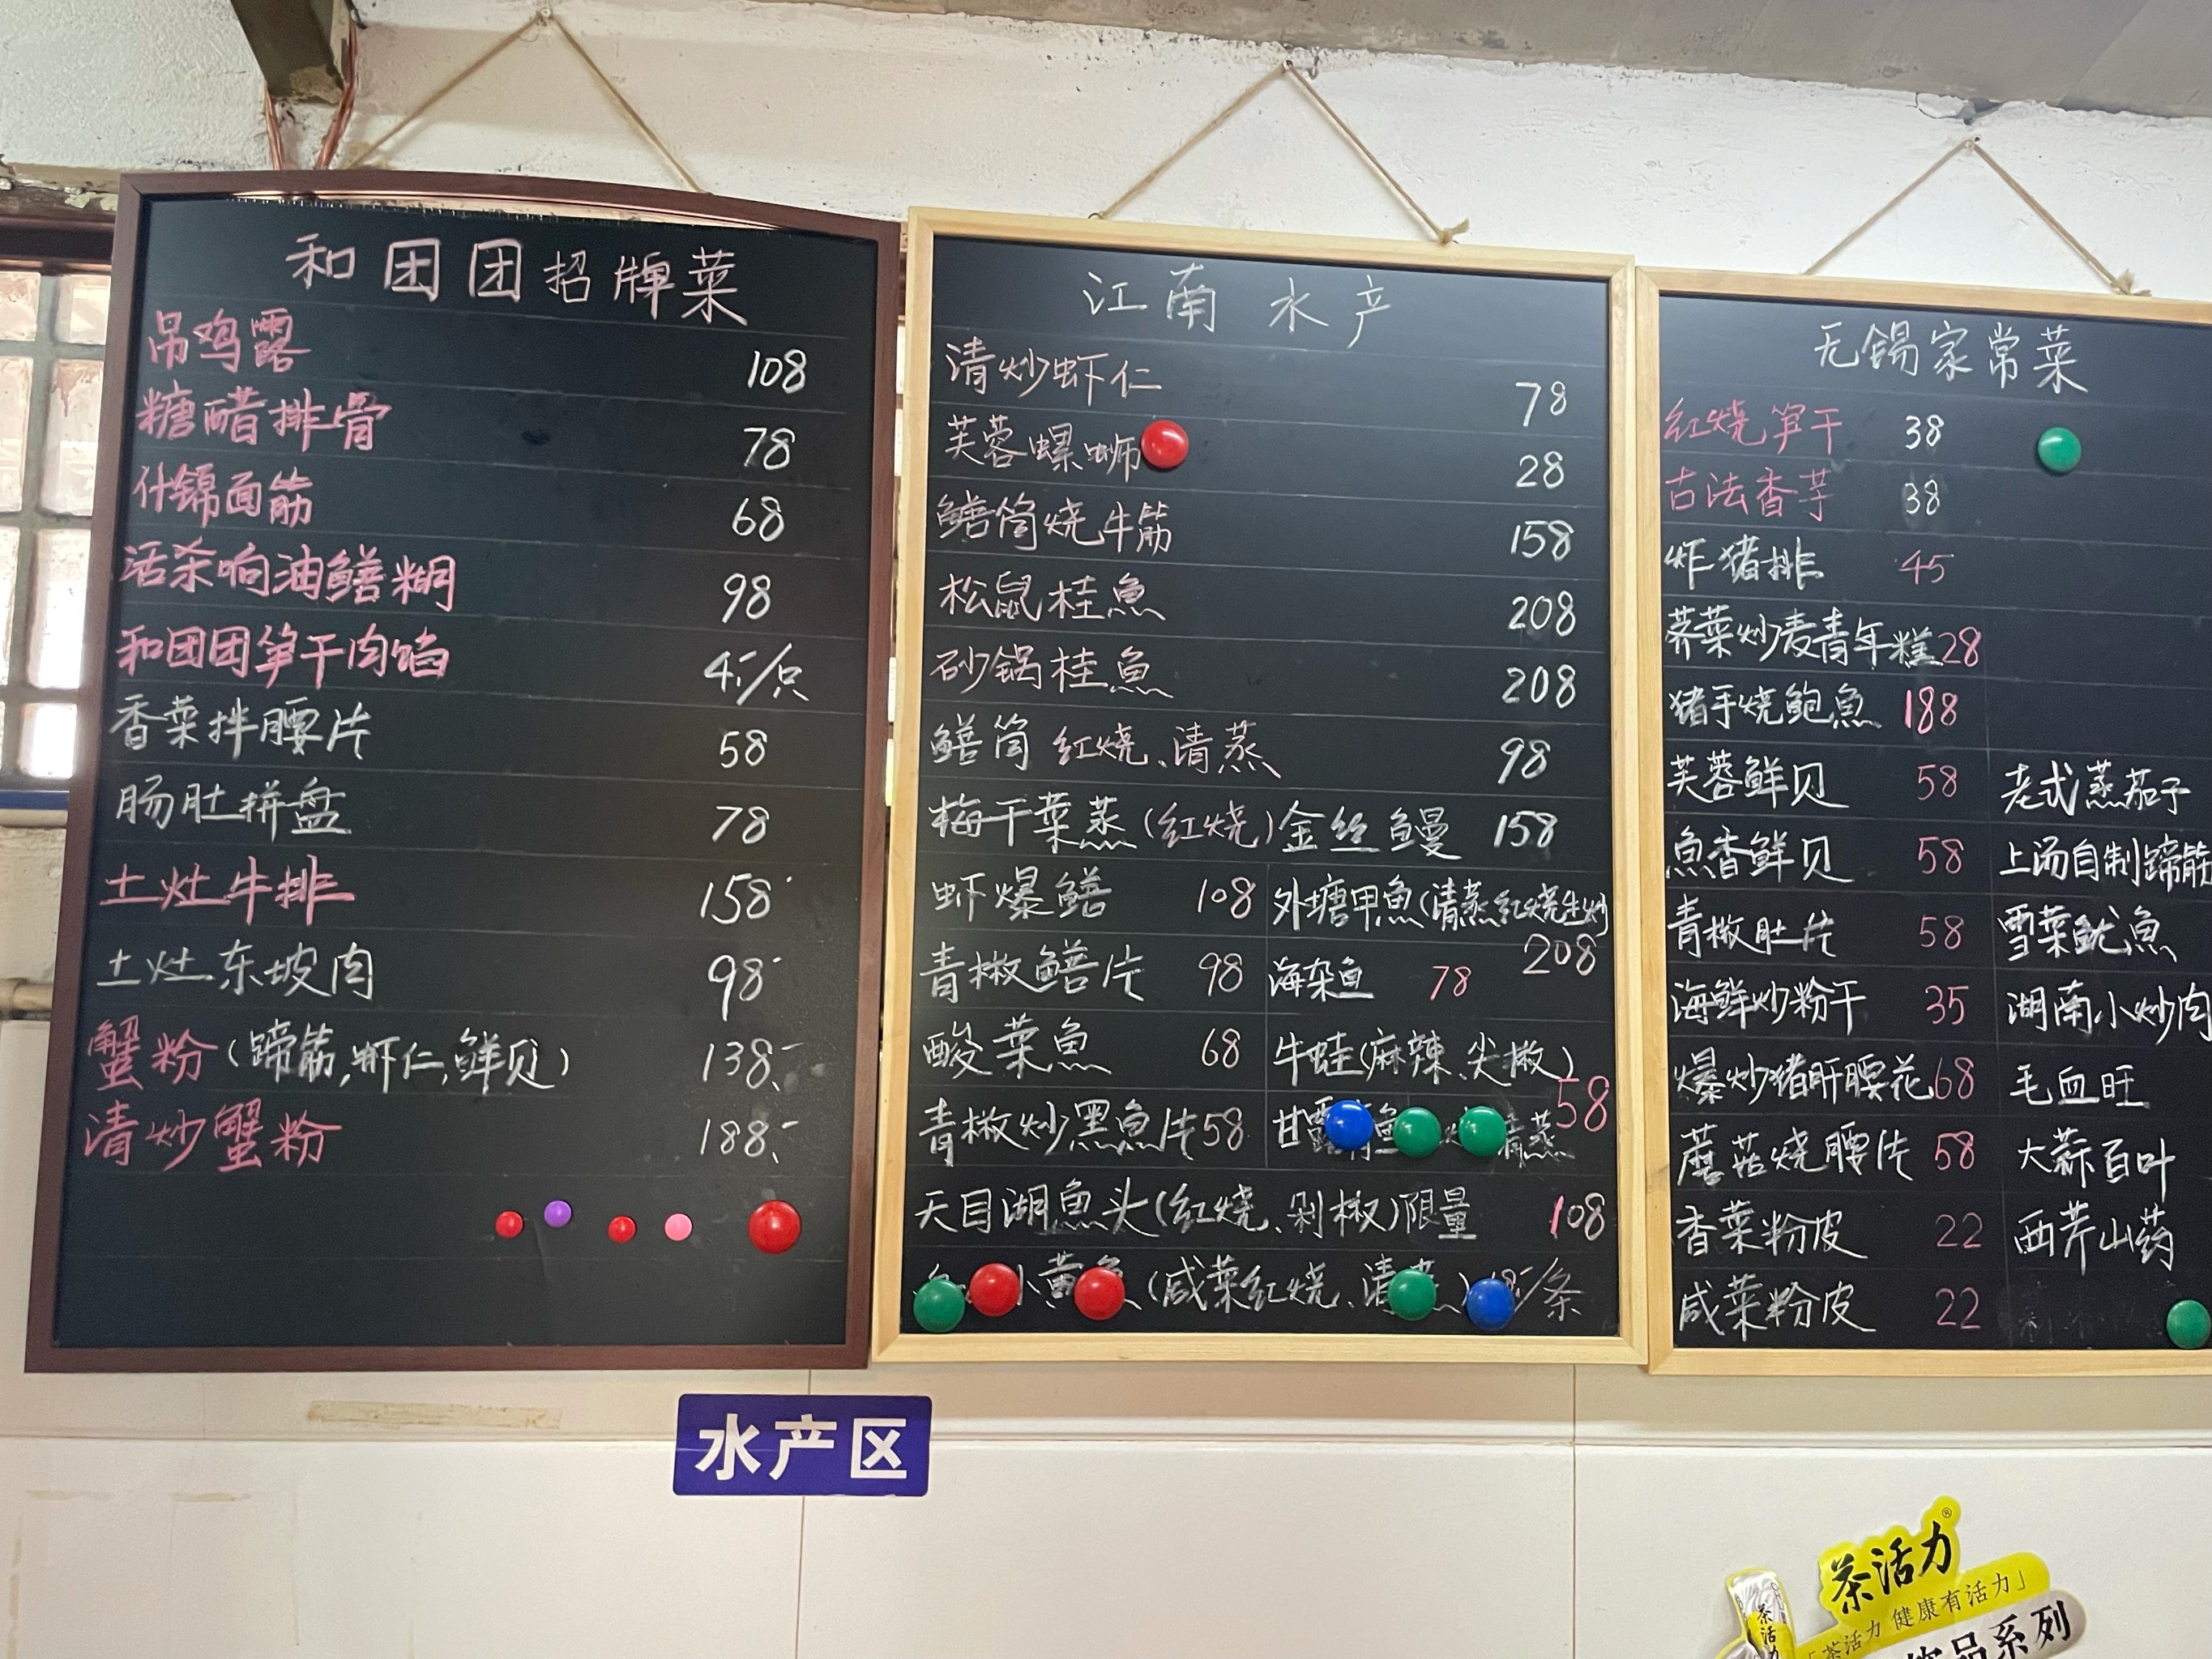 和团团招牌菜
吊鸡露 108
糖醋排骨 78
什锦面筋 68
活杀响油鳝糊 98
和团团笋干肉馅 4.-/只
香菜拌腰片 58
肠肚拼盘 78
土灶牛排 158
土灶东坡肉 98
蟹粉(蹄筋,虾仁,鲜贝) 138.-
清炒蟹粉 188.-
江南水产
清炒虾仁 78
芙蓉螺蛳 28
鳝筒烧牛筋 158
松鼠桂魚 208
砂锅桂魚 208
鳝筒 红烧、清蒸 98
梅干菜蒸(红烧)金丝鳗 158
虾爆鳝 108 外塘甲魚(清蒸红烧生炒) 208
青椒鳝片 98 海杂鱼 78
酸菜魚 68 牛蛙(麻辣、尖椒) 58
青椒炒黑魚片 58 甘 清蒸
天目湖魚头(红烧、剁椒)限量 108
小黄魚(咸菜红烧、清蒸) /条
无锡家常菜
红烧笋干 38
古法香芋 38
炸猪排 45
荠菜炒麦青年糕 28
猪手烧鲍魚 188
芙蓉鲜贝 58 老式蒸茄子
魚香鲜贝 58 上汤自制蹄筋
青椒肚片 58 雪菜鱿魚
海鲜炒粉干 35 湖南小炒肉
爆炒猪肝腰花 68 毛血旺
蘑菇烧腰片 58 大蒜百叶
香菜粉皮 22 西芹山药
咸菜粉皮 22
水产区
茶活力®
「茶活力 健康有活力」
茶活力
饮品系列